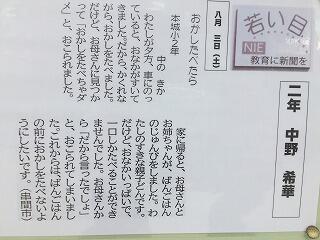 若い目
NIE
教育に新聞を
二年 中野 希華
八月 三日(土)
おかしたべたら
本城小2年
中の きか
わたしが夕方、車にのっ
ていると、おなかがすいて
きました。だから、かくれな
がら、おかしをたべました。
だけど、お母さんに見つか
って「おかしをたべちゃダ
メ」と、おこられました。
家に帰ると、お母さんと
お姉ちゃんが、ばんごはん
のじゅんびをしました。わ
たしのすきな親子どんです。
だけど、おなかいっぱいで、
一口しかたべることができ
ませんでした。お母さんか
ら「だから言ったでしょ」
と、おこられてしまいまし
た。これからは、ばんごはん
の前におかしをたべないよ
うにしたいです。(串間市)